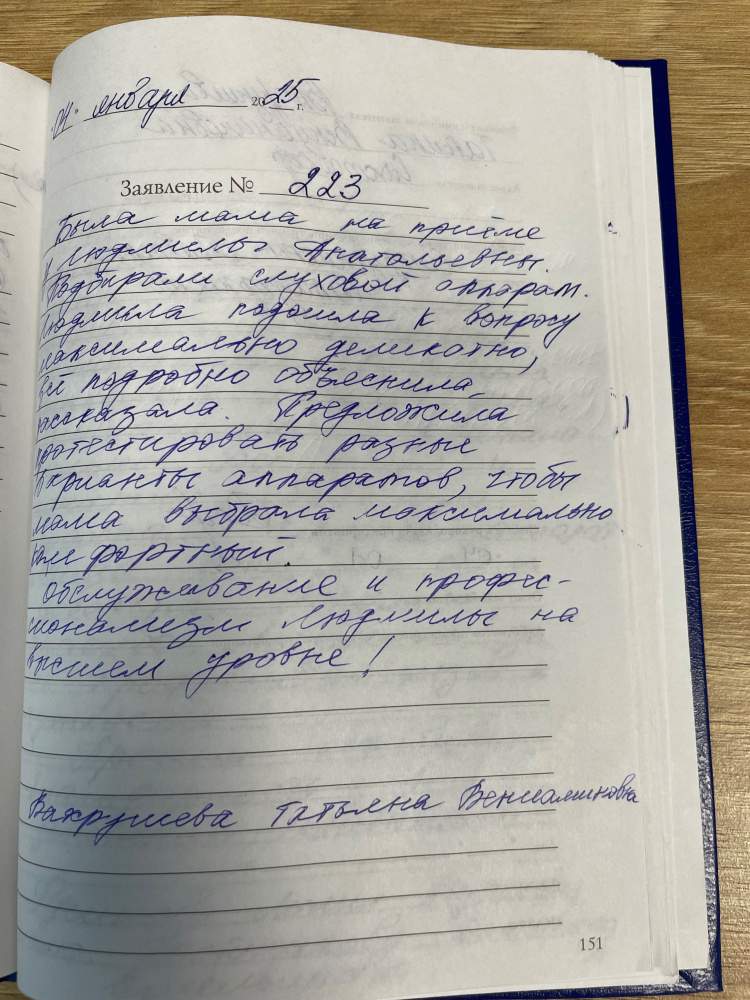 „04" января 2025 г.
Заявление № 223
Была мама на приёме
у Людмилы Анатольевны.
Подбирали слуховой аппарат.
Людмила подошла к вопросу
максимально деликатно,
всё подробно объяснила,
рассказала. Предложила
протестировать разные
варианты аппаратов, чтобы
мама выбрала максимально
комфортный.
Обслуживание и профес-
сионализм Людмилы на
высшем уровне!
Вахрушева Татьяна Вениаминовна
151